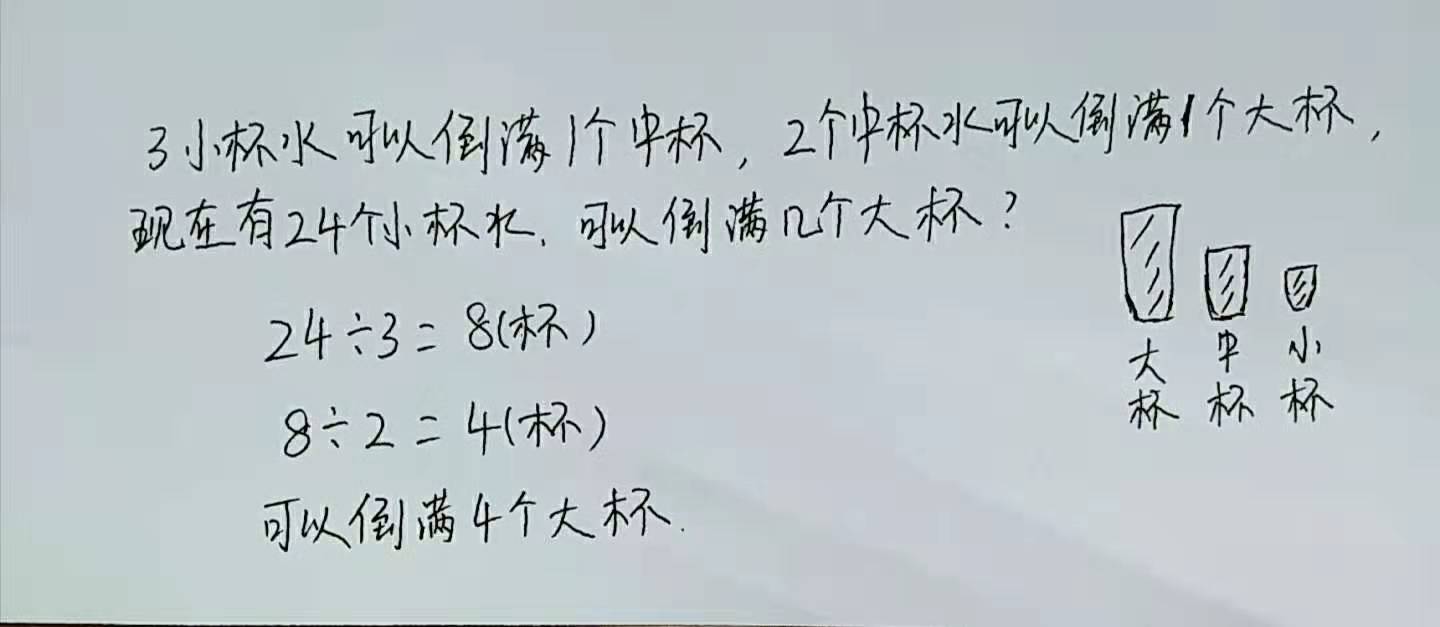 3小杯水可以倒满1个中杯，2个中杯水可以倒满1个大杯，
现在有24个小杯水，可以倒满几个大杯？
24÷3=8(杯)
8÷2=4(杯)
可以倒满4个大杯.
大杯 中杯 小杯